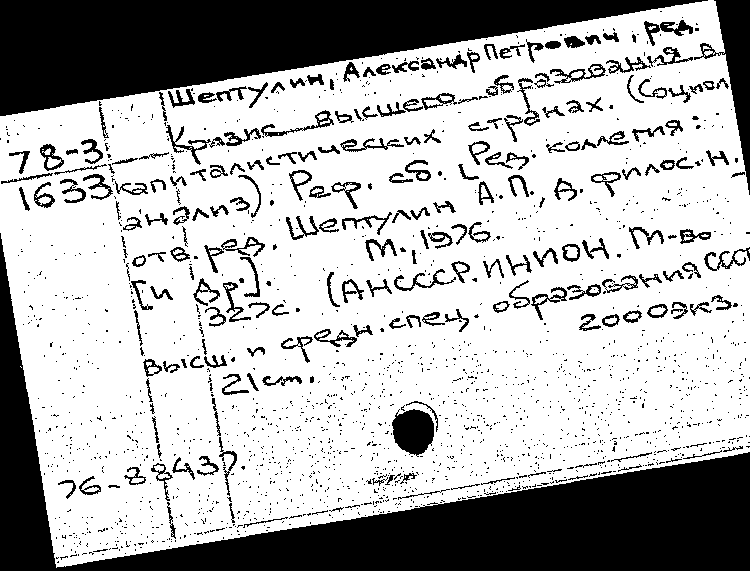 Шептулин, Александр Петрович, ред.
78-3
1633
Кризис высшего образования в
капиталистических странах. (Социол
анализ). Реф. сб. [Ред. коллегия:
отв. ред. Шептулин А.П., д. филос. н.
[и др.]. М., 1976.
327с. (АНСССР. ИНИОН. М-во
высш. и средн. спец. образования СССР
21cm. 2000экз.
76-88437.